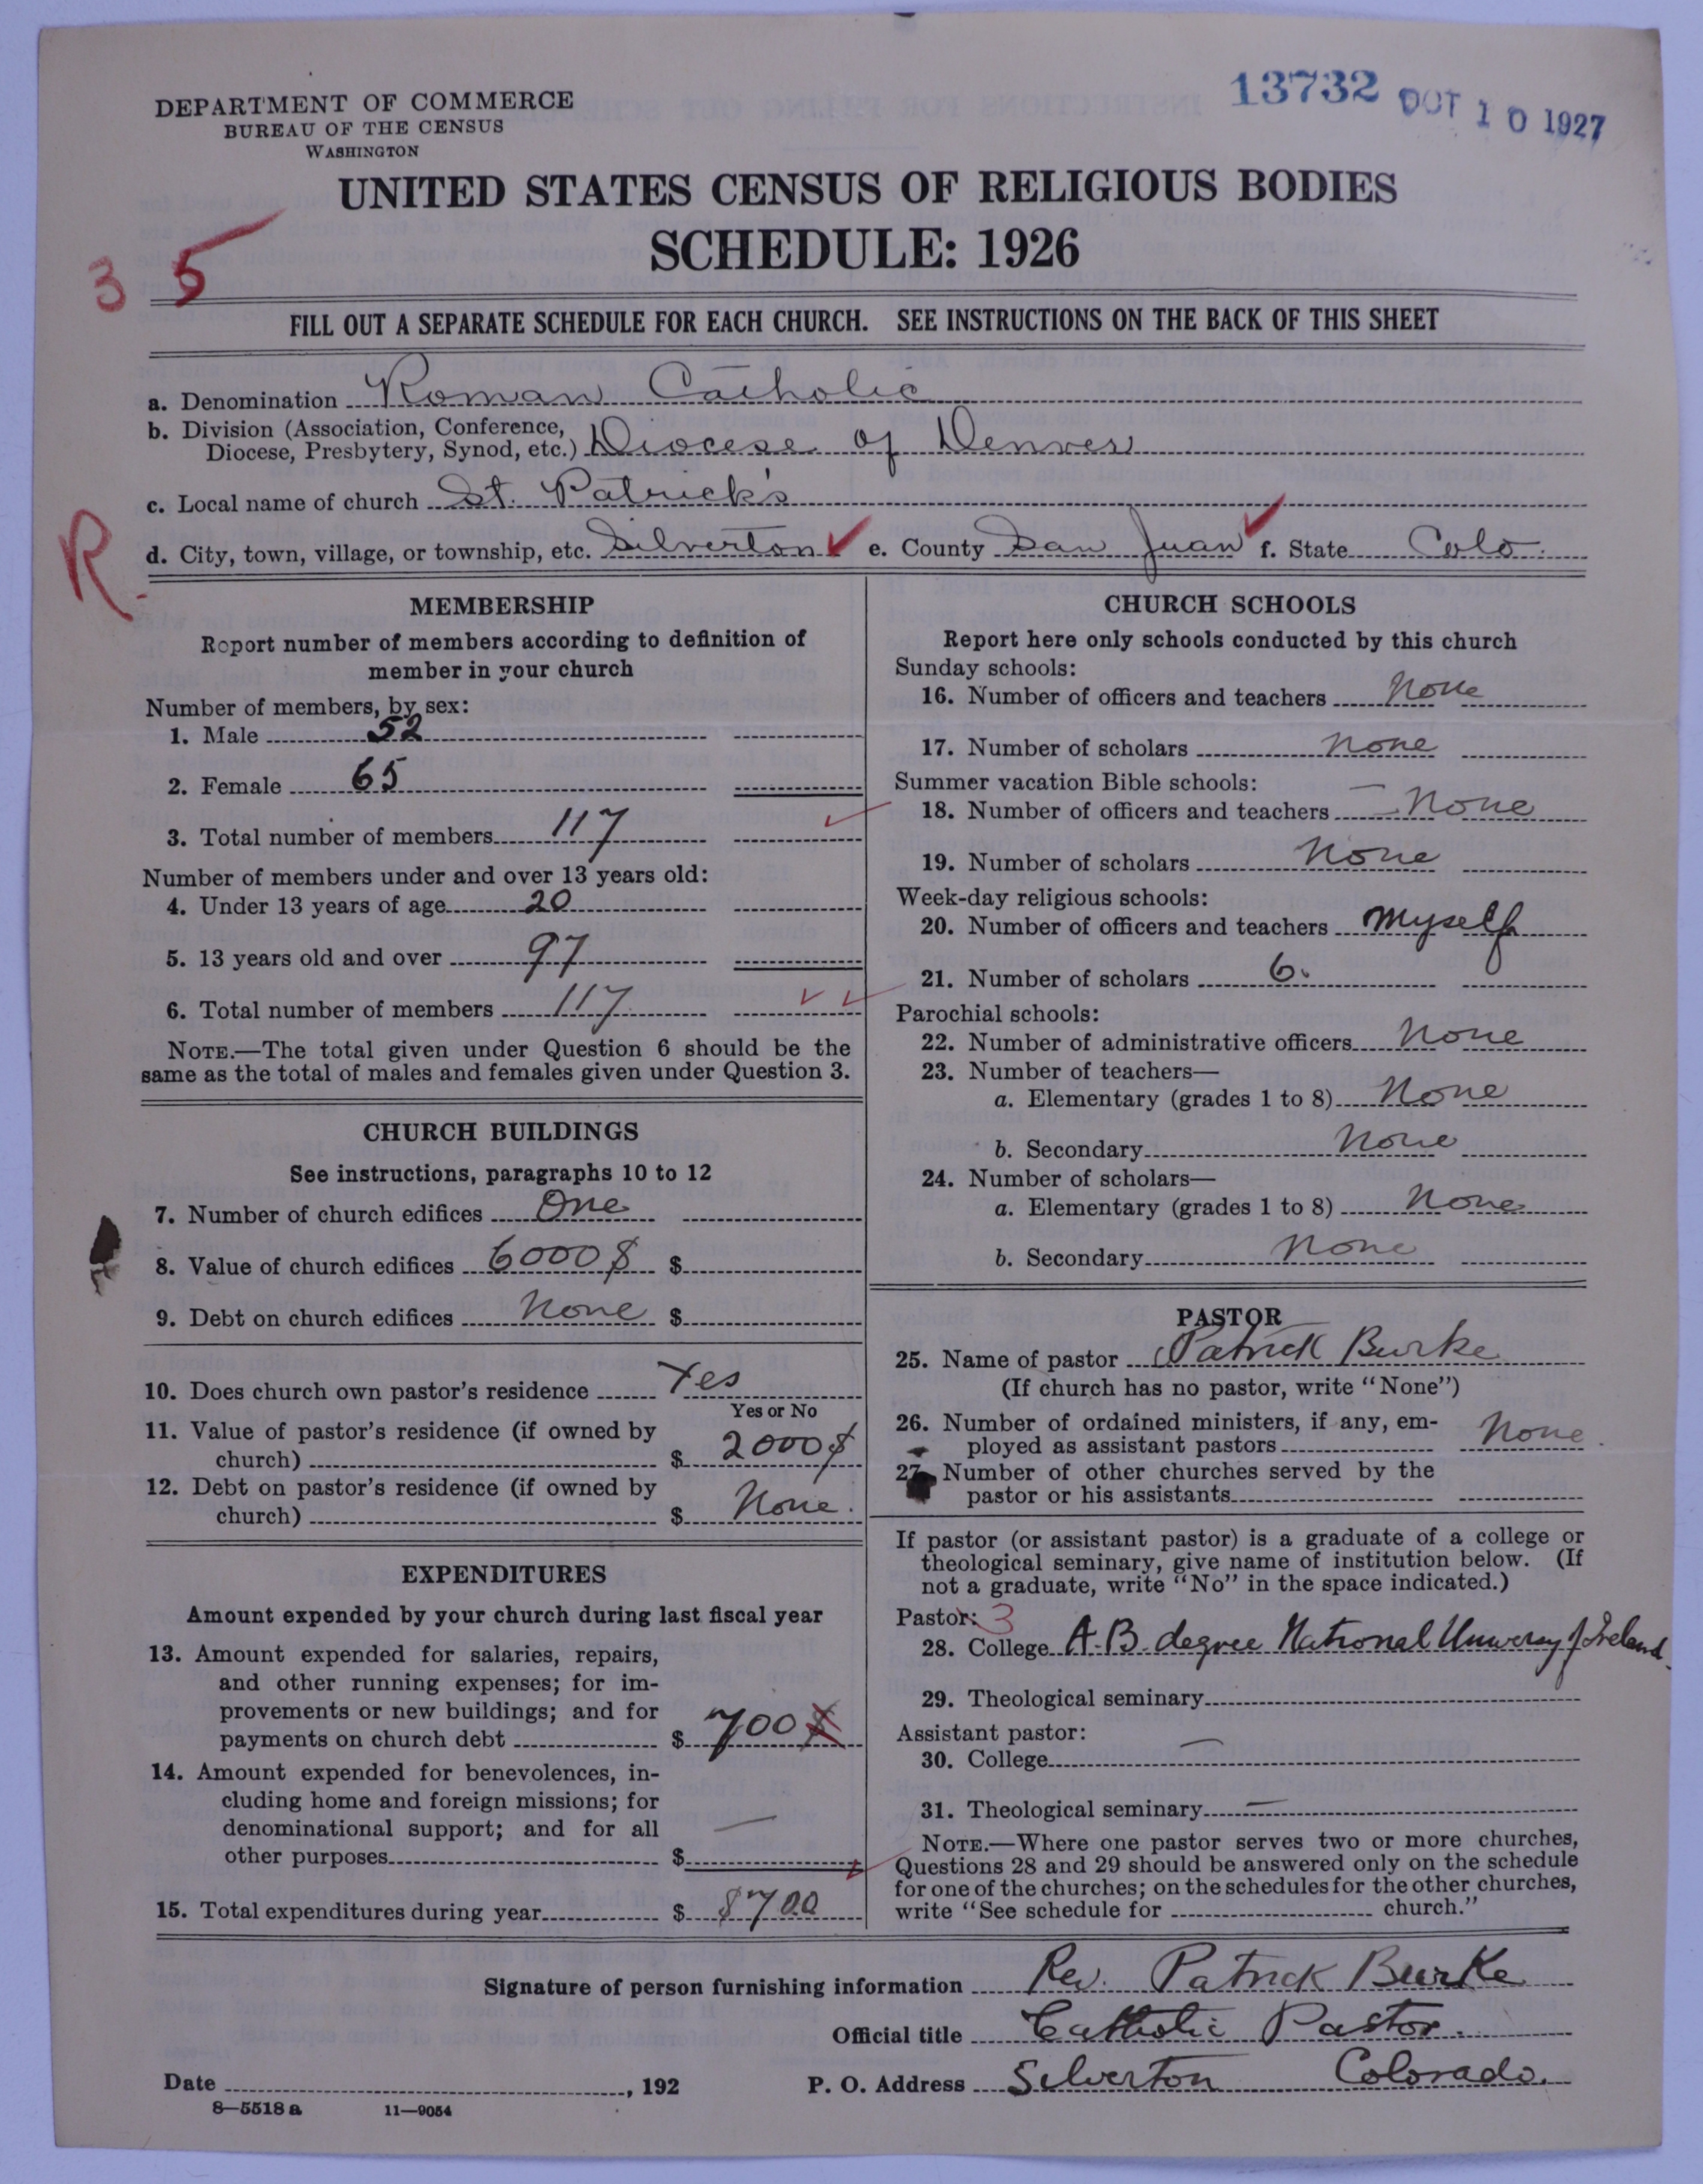 13732 OCT 10 1927
DEPARTMENT OF COMMERCE
BUREAU OF THE CENSUS
WASHINGTON
UNITED STATES CENSUS OF RELIGIOUS BODIES
SCHEDULE: 1926
3 5
FILL OUT A SEPARATE SCHEDULE FOR EACH CHURCH. SEE INSTRUCTIONS ON THE BACK OF THIS SHEET
a. Denomination Roman Catholic
b. Division (Association, Conference,
Diocese, Presbytery, Synod, etc.) Diocese of Denver
c. Local name of church St. Patrick's
R.
d. City, town, village, or township, etc. Silverton e. County San Juan f. State Colo.
MEMBERSHIP
Report number of members according to definition of
member in your church
Number of members, by sex:
1. Male 52
2. Female 65
3. Total number of members 117
Number of members under and over 13 years old:
4. Under 13 years of age 20
5. 13 years old and over 97
6. Total number of members 117
NOTE.—The total given under Question 6 should be the
same as the total of males and females given under Question 3.
CHURCH BUILDINGS
See instructions, paragraphs 10 to 12
7. Number of church edifices One
8. Value of church edifices 6000$ $
9. Debt on church edifices None $
10. Does church own pastor's residence Yes
Yes or No
11. Value of pastor's residence (if owned by
church) $ 2000$
12. Debt on pastor's residence (if owned by
church) $ None.
EXPENDITURES
Amount expended by your church during last fiscal year
13. Amount expended for salaries, repairs,
and other running expenses; for im-
provements or new buildings; and for
payments on church debt $ 700$
14. Amount expended for benevolences, in-
cluding home and foreign missions; for
denominational support; and for all
other purposes $ —
15. Total expenditures during year $ $700
CHURCH SCHOOLS
Report here only schools conducted by this church
Sunday schools:
16. Number of officers and teachers None
17. Number of scholars None
Summer vacation Bible schools:
18. Number of officers and teachers — None
19. Number of scholars None
Week-day religious schools:
20. Number of officers and teachers Myself
21. Number of scholars 6.
Parochial schools:
22. Number of administrative officers None
23. Number of teachers—
a. Elementary (grades 1 to 8) None
b. Secondary None
24. Number of scholars—
a. Elementary (grades 1 to 8) None
b. Secondary None
PASTOR
25. Name of pastor Patrick Burke
(If church has no pastor, write "None")
26. Number of ordained ministers, if any, em-
ployed as assistant pastors None.
27. Number of other churches served by the
pastor or his assistants
If pastor (or assistant pastor) is a graduate of a college or
theological seminary, give name of institution below. (If
not a graduate, write "No" in the space indicated.)
Pastor: 3
28. College A.B. degree National Universy of Ireland.
29. Theological seminary
Assistant pastor:
30. College —
31. Theological seminary —
NOTE.—Where one pastor serves two or more churches,
Questions 28 and 29 should be answered only on the schedule
for one of the churches; on the schedules for the other churches,
write "See schedule for church."
Signature of person furnishing information Rev. Patrick Burke
Official title Catholic Pastor.
Date , 192 P. O. Address Silverton Colorado.
8—5518 a 11—9054